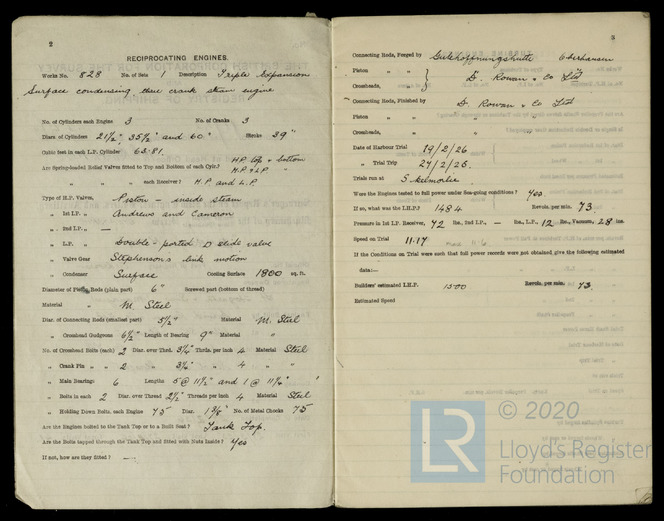 2
RECIPROCATING ENGINES.
Works No. 828 No. of Sets 1 Description Triple Expansion
Surface condensing three crank steam engine
No. of Cylinders each Engine 3 No. of Cranks 3
Diars. of Cylinders 21½", 35½" and 60" Stroke 39"
Cubic feet in each L.P. Cylinder 63.81
Are Spring-loaded Relief Valves fitted to Top and Bottom of each Cylr.? H.P. top & bottom
" " " each Receiver? H.P. and L.P.
Type of H.P. Valves, Piston – inside steam
" 1st I.P. " Andrews and Cameron
" 2nd I.P. " —
" L.P. " Double-ported D slide valve
" Valve Gear Stephenson's link motion
" Condenser Surface Cooling Surface 1800 sq. ft.
Diameter of Piston Rods (plain part) 6" Screwed part (bottom of thread)
Material " M. Steel
Diar. of Connecting Rods (smallest part) 5½" Material M. Steel
" Crosshead Gudgeons 6½" Length of Bearing 9" Material "
No. of Crosshead Bolts (each) 2 Diar. over Thrd. 3¼" Thrds. per inch 4 Material Steel
" Crank Pin " " 2 " 3¼" " 4 " "
" Main Bearings 6 Lengths 5 @ 11½" and 1 @
" Bolts in each 2 Diar. over Thread 2½" Threads per inch 4 Material Steel
" Holding Down Bolts, each Engine 75 Diar. 1⅜" No. of Metal Chocks 75
Are the Engines bolted to the Tank Top or to a Built Seat? Tank Top.
Are the Bolts tapped through the Tank Top and fitted with Nuts Inside? Yes
If not, how are they fitted? —
3
Connecting Rods, Forged by Gutehoffnungshütte Oberhausen
Piston " "
Crossheads, " " D. Rowan & Co Ltd
Connecting Rods, Finished by D. Rowan & Co Ltd
Piston " "
Crossheads, " "
Date of Harbour Trial 19/2/26
" Trial Trip
Trials run at Skelmorlie
Were the Engines tested to full power under Sea-going conditions? Yes
If so, what was the I.H.P.? 1484 Revols. per min. 73
Pressure in 1st I.P. Receiver, 72 lbs., 2nd I.P., — lbs., L.P., 12 lbs., Vacuum, 28 ins.
Speed on Trial 11.17
If the Conditions on Trial were such that full power records were not obtained give the following estimated
data:—
Builders' estimated I.H.P. 1500 Revols. per min. 73
Estimated Speed
LR © 2020
Lloyd's Register
Foundation